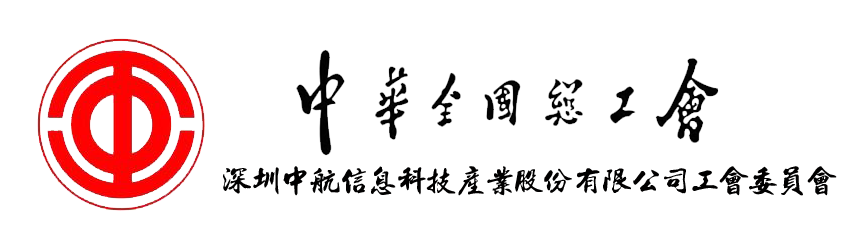 中華全国總工會
深圳中航信息科技産業股份有限公司工會委員會